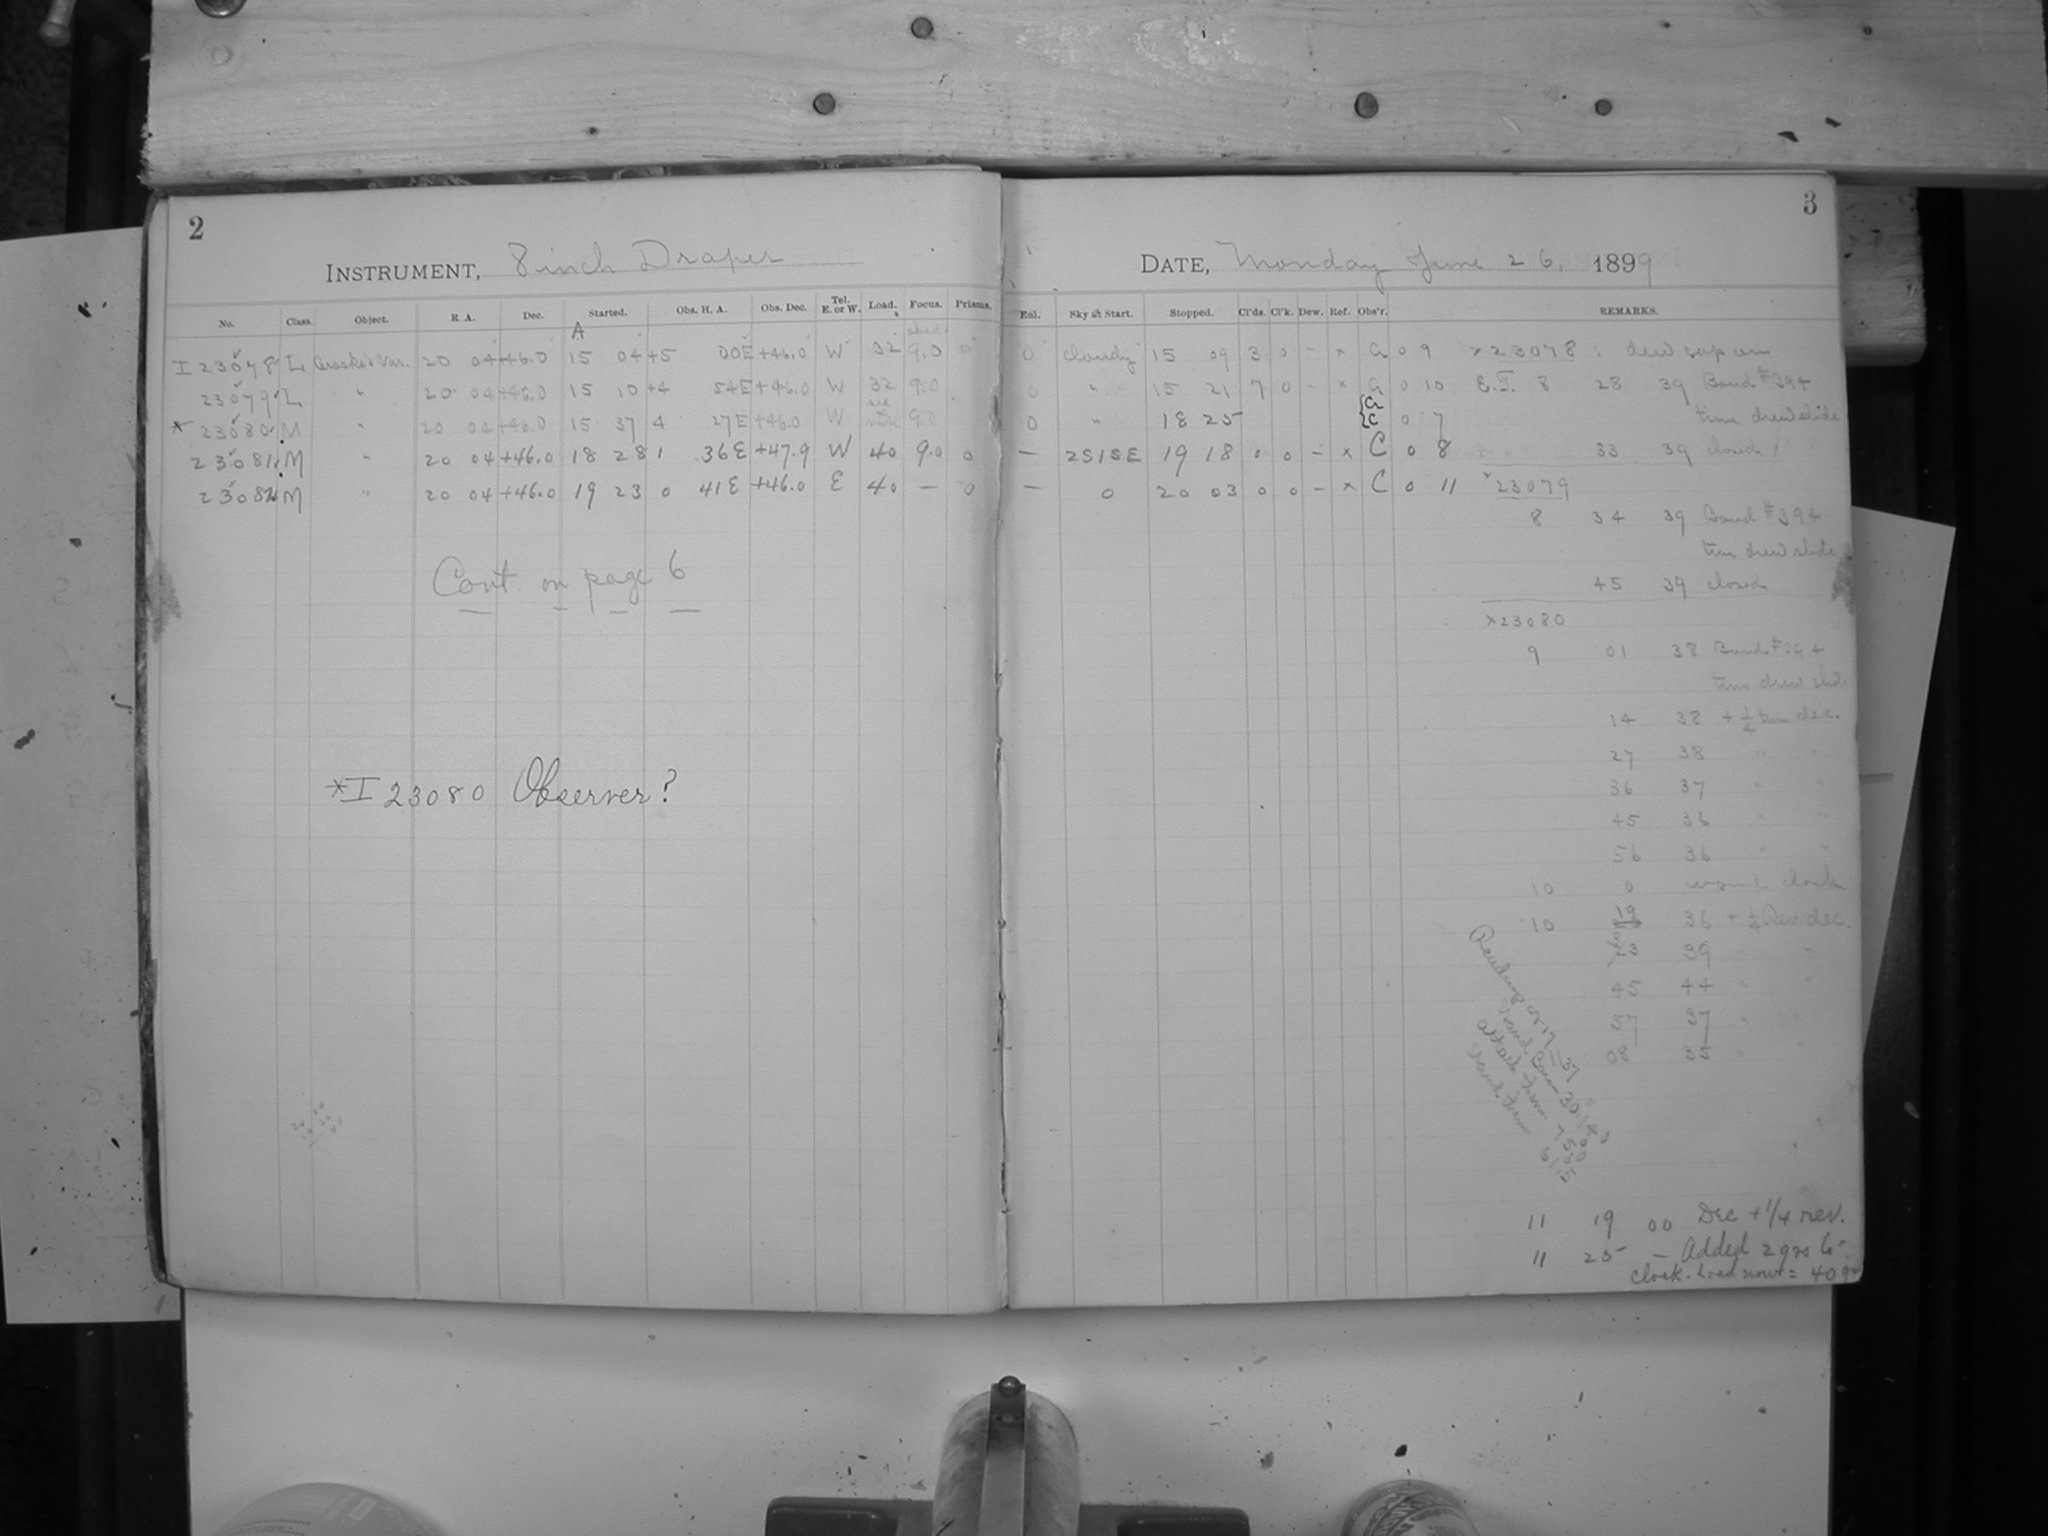 2
INSTRUMENT, 8 inch Draper
No. Class. Object. R. A. Dec. Started. Obs. H. A. Obs. Dec. Tel. E. or W. Load. Focus. Prisms.
A
I 23078 L Var. 20 04 +46.0 15 04 +5 00E +46.0 W 32 9.0 0
23079 L " 20 04 +46.0 15 10 +4 54E +46.0 W 32 9.0
* 23080 M " 20 04 +46.0 15 37 4 27E +46.0 W 9.0
23081 M " 20 04 +46.0 18 28 1 36E +47.9 W 40 9.0 0
23082 M " 20 04 +46.0 19 23 0 41E +46.0 E 40 – 0
Cont. on page 6
*I 23080 Observer?
3
DATE, Monday June 26, 1899
Eul. Sky at Start. Stopped. Cl'ds. Cl'k. Dew. Ref. Obs'r. REMARKS.
0 cloudy 15 09 3 0 – x G 0 9 x 23078 : dew cap on
0 " 15 21 7 0 – x G 0 10 E.T. 8 28 39 Bond #394
0 " 18 25 { G C 0 7 time drew slide
– 2S1S E 19 18 0 0 – x C 0 8 33 39 closed
– 0 20 03 0 0 – x C 0 11 x 23079
8 34 39 Bond #394
time drew slide
45 39 closed
x 23080
9 01 38 Bond #394
time drew slide
14 38 + 1/4 turn dec.
27 38 " "
36 37 " "
45 36 " "
56 36 " "
10 0 wound clock
10 19 36 + 1/4 Rev. dec.
39 "
45 44 " "
57 37 " "
08 35 " "
11 19 00 Dec + 1/4 rev.
11 25 – Added 2 grs to
clock. Load now = 40 gr